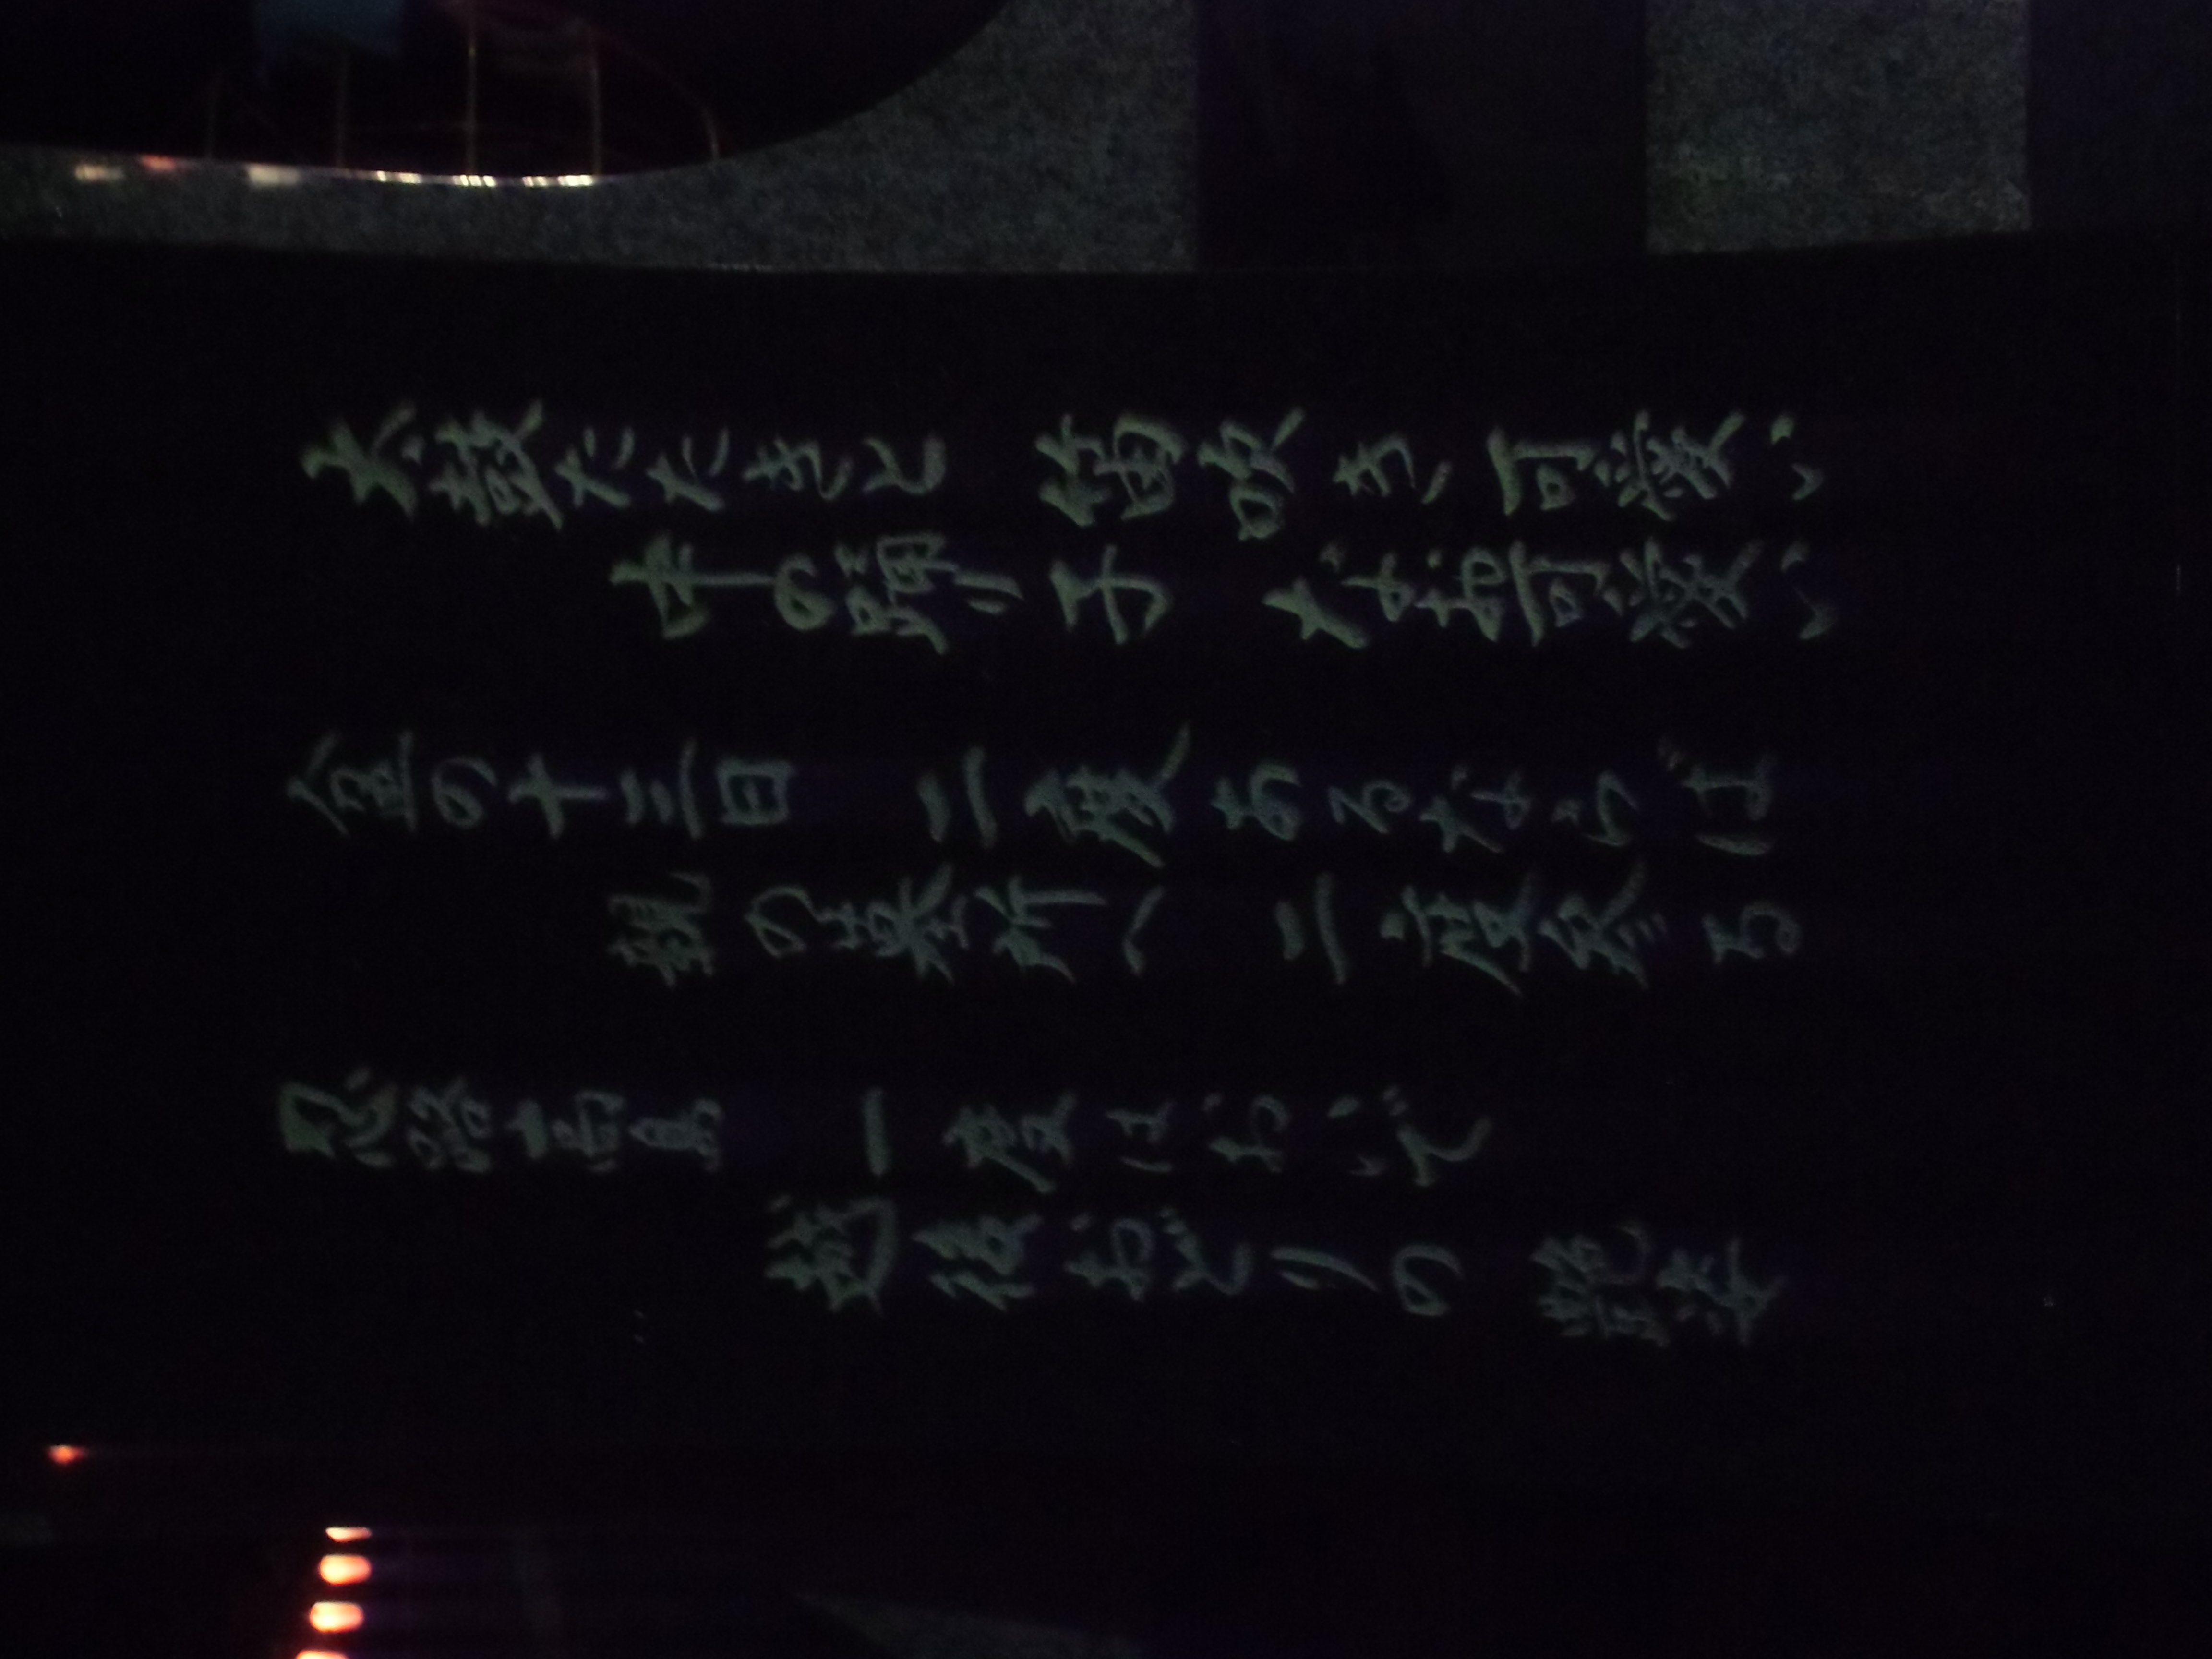 太鼓たたきと 笛吹き可愛い
中の踊り子 なお可愛い
盆の十三日 二度あるならば
親の墓所へ 二度参る
忍路高島 一度はおいで
越後おどりの